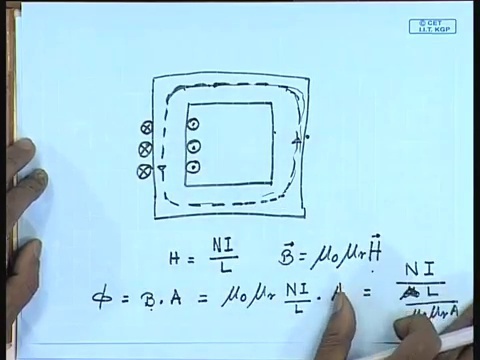 © CET
I.I.T. KGP
H = NI/L    B⃗ = μ₀μᵣH⃗
Φ = B.A = μ₀μᵣ NI/L . A = NI / (L/μ₀μᵣA)